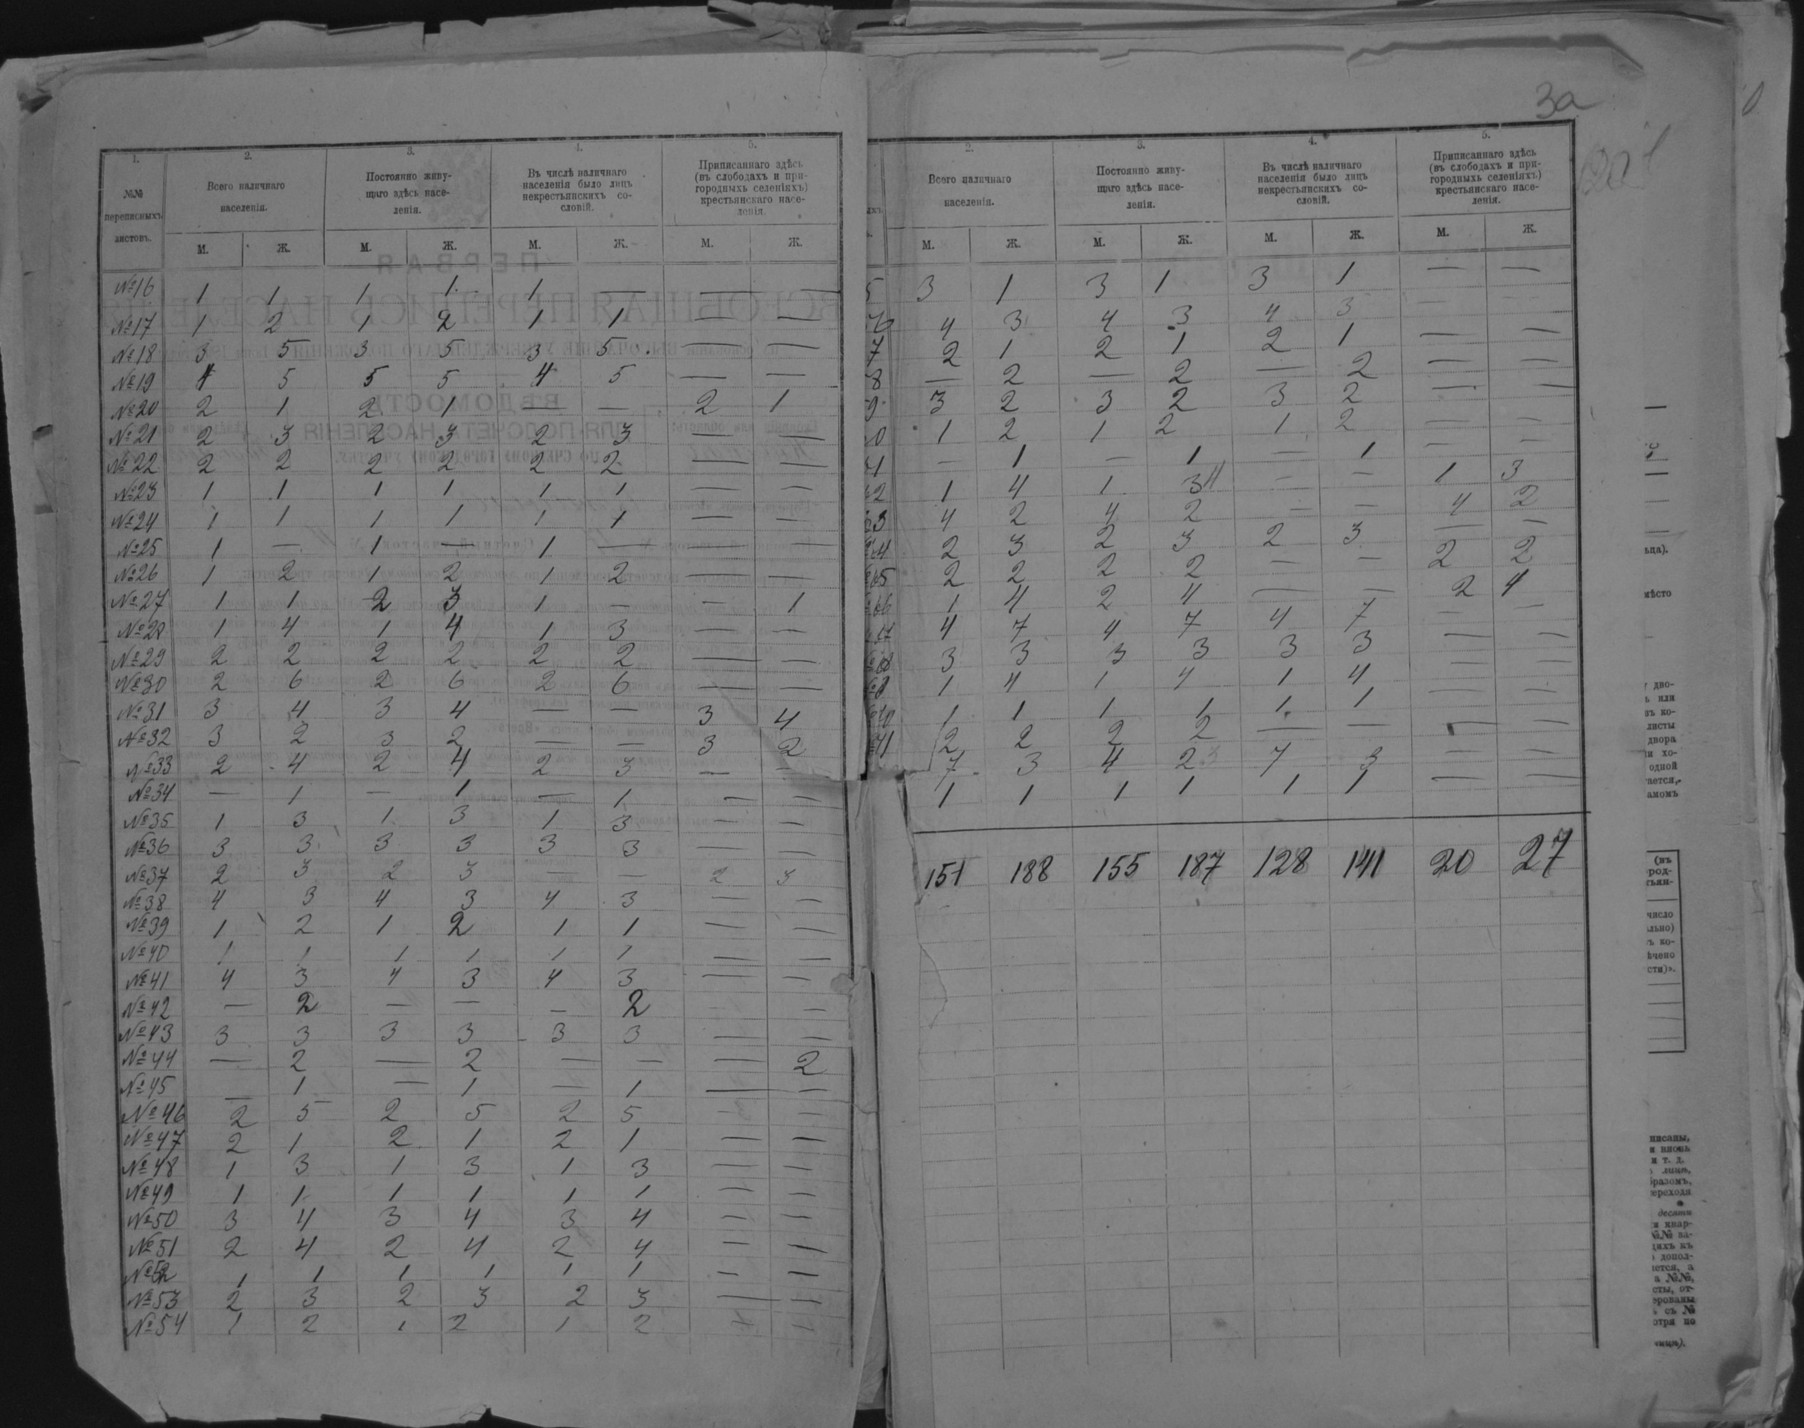 1. 2. 3. 4. 5.
№№ переписныхъ листовъ.
Всего наличнаго населенія.
Постоянно живущаго здѣсь населенія.
Въ числѣ наличнаго населенія было лицъ некрестьянскихъ сословій.
Приписаннаго здѣсь (въ слободахъ и пригородныхъ селеніяхъ) крестьянскаго населенія.
М. Ж. М. Ж. М. Ж. М. Ж.
№16 1 1 1 1 1 — — —
№17 1 2 1 2 1 1 — —
№18 3 5 3 5 3 5 — —
№19 4 5 5 5 4 5 — —
№20 2 1 2 1 — — 2 1
№21 2 3 2 3 2 3 — —
№22 2 2 2 2 2 2 — —
№23 1 1 1 1 1 1 — —
№24 1 1 1 1 1 1 — —
№25 1 — 1 — 1 — — —
№26 1 2 1 2 1 2 — —
№27 1 1 2 3 1 — — 1
№28 1 4 1 4 1 3 — —
№29 2 2 2 2 2 2 — —
№30 2 6 2 6 2 6 — —
№31 3 4 3 4 — — 3 4
№32 3 2 3 2 — — 3 2
№33 2 4 2 4 2 3 — —
№34 — 1 — 1 — 1 — —
№35 1 3 1 3 1 3 — —
№36 3 3 3 3 3 3 — —
№37 2 3 2 3 — — 2 3
№38 4 3 4 3 4 3 — —
№39 1 2 1 2 1 1 — —
№40 1 1 1 1 1 1 — —
№41 4 3 4 3 4 3 — —
№42 — 2 — — — 2 — —
№43 3 3 3 3 3 3 — —
№44 — 2 — 2 — — — 2
№45 — 1 — 1 — 1 — —
№46 2 5 2 5 2 5 — —
№47 2 1 2 1 2 1 — —
№48 1 3 1 3 1 3 — —
№49 1 1 1 1 1 1 — —
№50 3 4 3 4 3 4 — —
№51 2 4 2 4 2 4 — —
№52 1 1 1 1 1 1 — —
№53 2 3 2 3 2 3 — —
№54 1 2 1 2 1 2 — —
3а
2. 3. 4. 5.
Всего наличнаго населенія.
Постоянно живущаго здѣсь населенія.
Въ числѣ наличнаго населенія было лицъ некрестьянскихъ сословій.
Приписаннаго здѣсь (въ слободахъ и пригородныхъ селеніяхъ) крестьянскаго населенія.
М. Ж. М. Ж. М. Ж. М. Ж.
5 3 1 3 1 3 1 — —
6 4 3 4 3 4 3 — —
7 2 1 2 1 2 1 — —
8 — 2 — 2 — 2 — —
9 3 2 3 2 3 2 — —
0 1 2 1 2 1 2 — —
— 1 — 1 — 1 — —
2 1 4 1 4 — — 1 3
3 4 2 4 2 — — 4 2
4 2 3 2 3 2 3 — —
65 2 2 2 2 — — 2 2
66 1 4 2 4 — — 2 4
67 4 7 4 7 4 7 — —
68 3 3 3 3 3 3 — —
1 4 1 4 1 4 — —
1 1 1 1 1 1 — —
71 2 2 2 2 — — — —
7 3 4 3 7 3 — —
1 1 1 1 1 1 — —
151 188 155 187 128 141 20 27